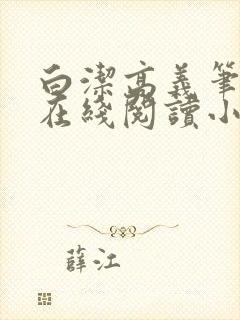 白潔高義筆
在綫閱讀小
薛江